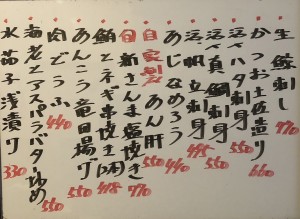 生鮪刺し 770
かつお土佐造り 660
活〆ハタ刺身
真鯛刺身 550
帆立刺身 495
あじなめろう 440
自家製 あん肝 550
新さんま塩焼き 770
鮪とネギ串焼き
あんこう竜田揚げ 550
肉どうふ 440
海老とアスパラバター炒め 550
水茄子浅漬り 330